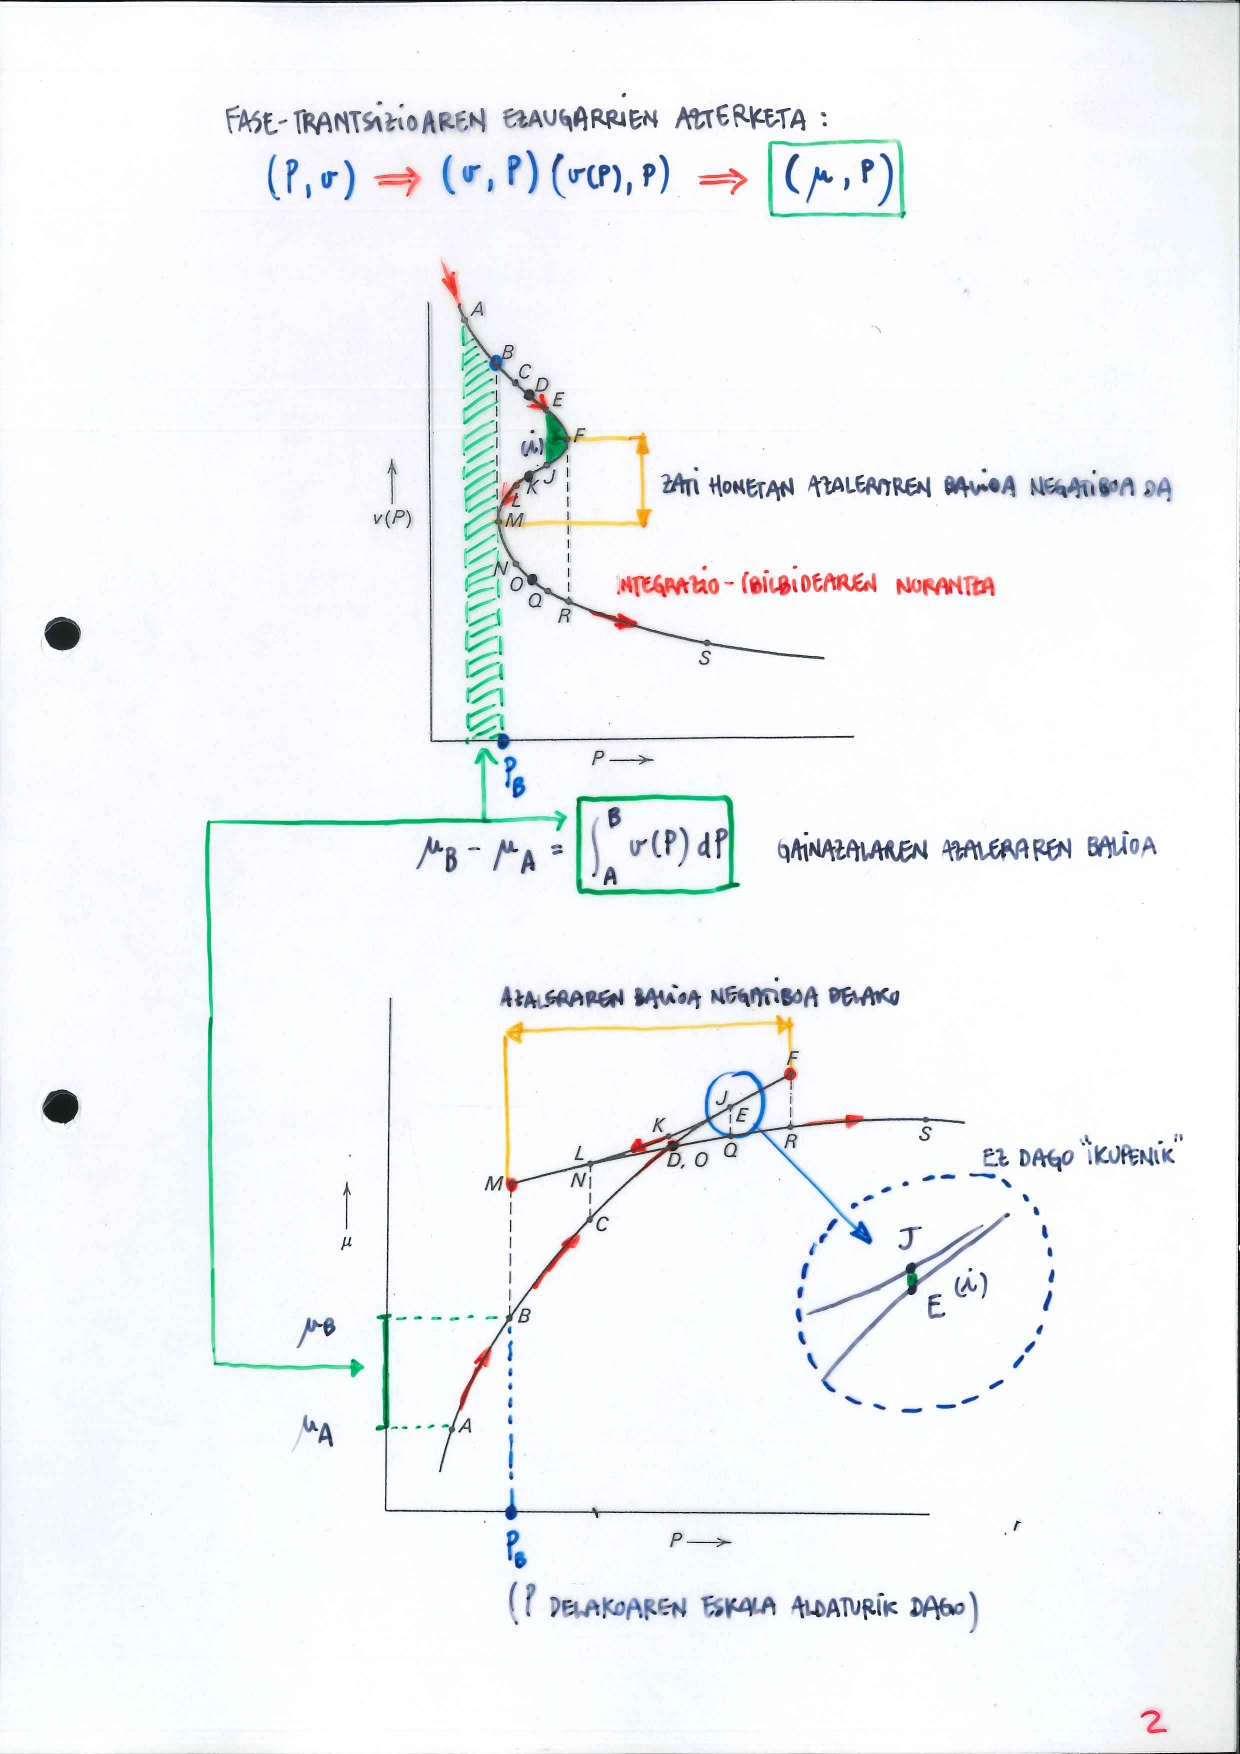 FASE-TRANTSIZIOAREN EZAUGARRIEN AZTERKETA :
(P, v) ⇒ (v, P) (v(P), P) ⇒ (μ, P)
A
B
C
D
E
(i)
F
J
K
L
M
v(P)
ZATI HONETAN AZALERAREN BALIOA NEGATIBOA DA
N
O
Q
R
INTEGRAZIO-IBILBIDEAREN NORANTZA
S
P →
P_B
μ_B - μ_A = ∫_A^B v(P) dP GAINAZALAREN AZALERAREN BALIOA
AZALERAREN BALIOA NEGATIBOA DELAKO
F
J
E
K
D, O
Q
R
S
L
N
M
C
EZ DAGO "IKUPENIK"
μ
J
E (i)
B
μ_B
A
μ_A
P →
P_B
(P DELAKOAREN ESKALA ALDATURIK DAGO)
2